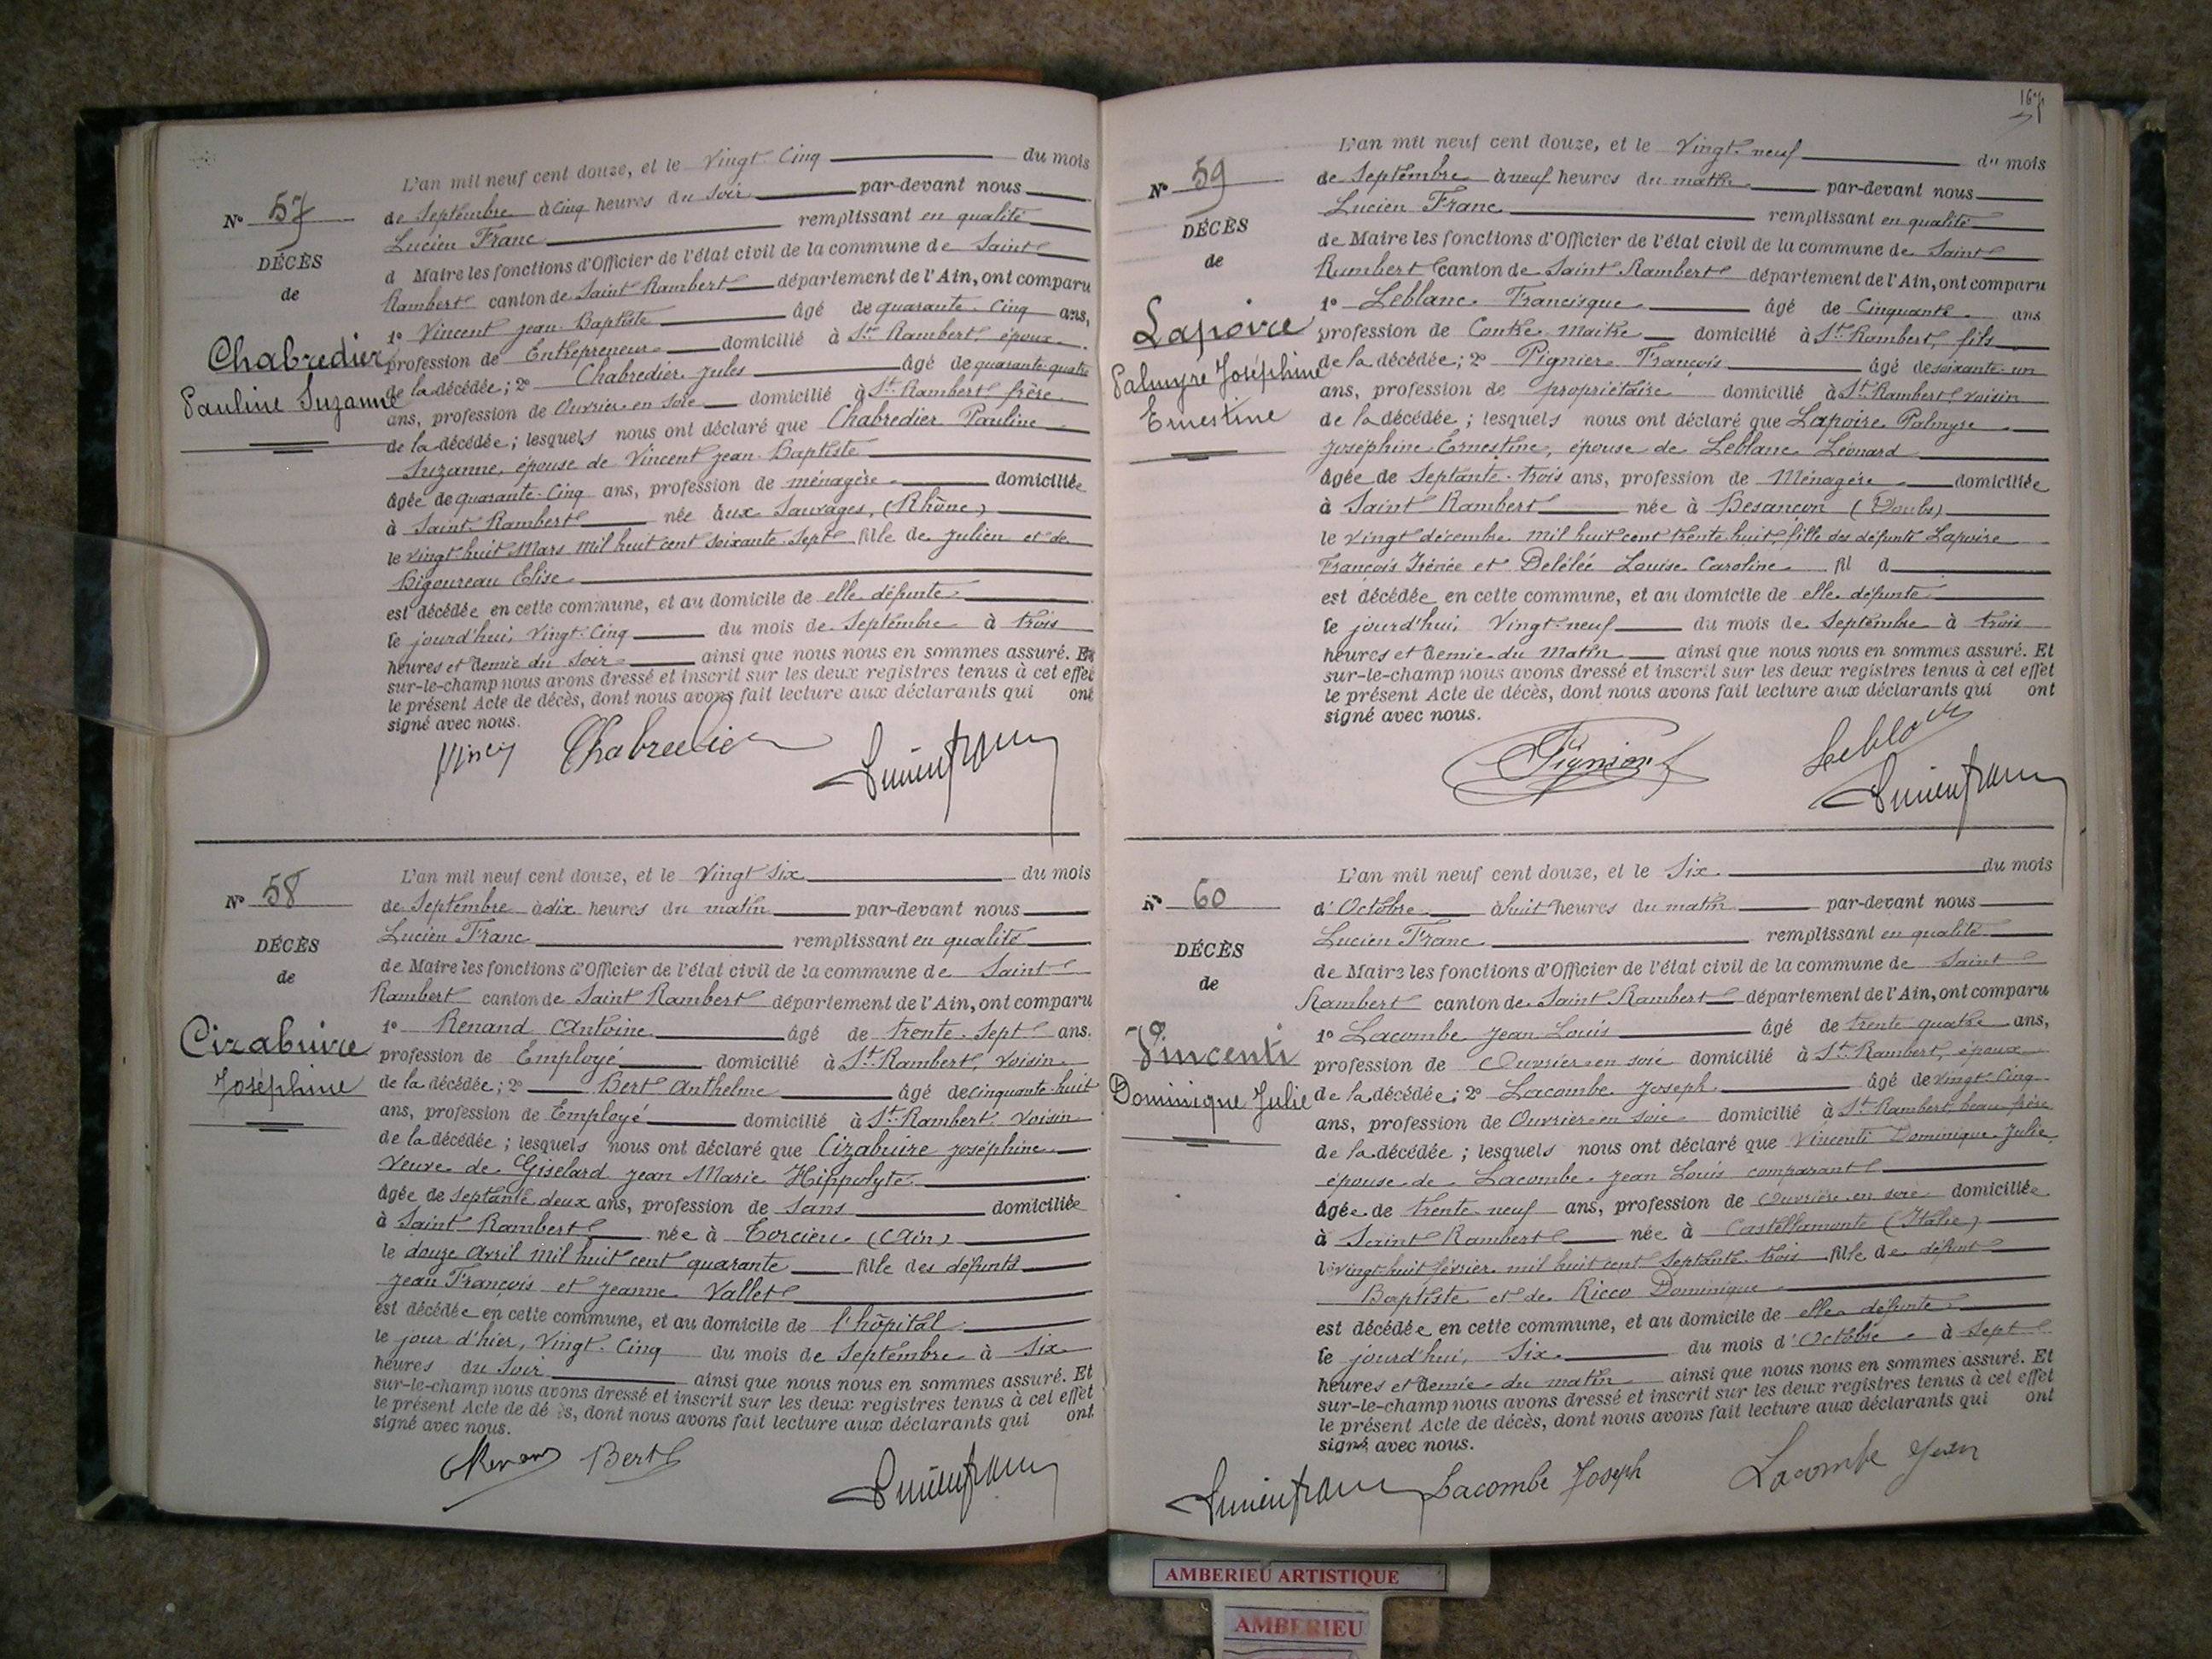 N° 57
DÉCÈS
de
Chabredier
Pauline Suzanne
L'an mil neuf cent douze, et le Vingt-Cinq du mois
de Septembre à Cinq heures du Soir par-devant nous
Lucien Franc remplissant en qualité
d Maire les fonctions d'Officier de l'état civil de la commune de Saint
Rambert canton de Saint Rambert département de l'Ain, ont comparu
1° Vincent Jean-Baptiste âgé de quarante-Cinq ans,
profession de Entrepreneur domicilié à St Rambert, époux
de la décédée; 2° Chabredier Jules âgé de quarante-quatre
ans, profession de Ouvrier en soie domicilié à St Rambert, frère
de la décédée; lesquels nous ont déclaré que Chabredier Pauline
Suzanne, épouse de Vincent Jean-Baptiste
âgée de quarante-Cinq ans, profession de ménagère domiciliée
à Saint Rambert née aux Sauvages, (Rhône)
le vingt huit Mars mil huit cent soixante-Sept fille de Julien et de
Bigoureau Elise
est décédée en cette commune, et au domicile de elle défunte
le jourd'hui, Vingt-Cinq du mois de Septembre à trois
heures et demie du Soir ainsi que nous nous en sommes assuré. Et
sur-le-champ nous avons dressé et inscrit sur les deux registres tenus à cet effet
le présent Acte de décès, dont nous avons fait lecture aux déclarants qui ont
signé avec nous.
Chabredier Lucien Franc
N° 58
DÉCÈS
de
Cizabuire
Joséphine
L'an mil neuf cent douze, et le Vingt Six du mois
de Septembre à dix heures du matin par-devant nous
Lucien Franc remplissant en qualité
de Maire les fonctions d'Officier de l'état civil de la commune de Saint
Rambert canton de Saint Rambert département de l'Ain, ont comparu
1° Renand Antoine âgé de trente-Sept ans.
profession de Employé domicilié à St Rambert, Voisin
de la décédée; 2° Bert Anthelme âgé de cinquante-huit
ans, profession de Employé domicilié à St Rambert Voisin
de la décédée; lesquels nous ont déclaré que Cizabuire Joséphine
Veuve de Giselard Jean Marie Hippolyte
âgée de septante deux ans, profession de Sans domiciliée
à Saint Rambert née à Torcieu (Ain)
le douze Avril mil huit cent quarante fille des défunts
Jean François et Jeanne Vallet
est décédée en cette commune, et au domicile de l'hôpital
le jour d'hier, Vingt-Cinq du mois de Septembre à Six
heures du Soir ainsi que nous nous en sommes assuré. Et
sur-le-champ nous avons dressé et inscrit sur les deux registres tenus à cet effet
le présent Acte de dé ès, dont nous avons fait lecture aux déclarants qui ont
signé avec nous.
Bert Lucien Franc
167
N° 59
DÉCÈS
de
Lapoire
Palmyre Joséphine
Ernestine
L'an mil neuf cent douze, et le Vingt-neuf du mois
de Septembre à neuf heures du matin par-devant nous
Lucien Franc remplissant en qualité
de Maire les fonctions d'Officier de l'état civil de la commune de Saint
Rambert canton de Saint Rambert département de l'Ain, ont comparu
1° Leblanc Francisque âgé de Cinquante ans
profession de Contre-Maître domicilié à St Rambert, fils
de la décédée; 2° Pignier François âgé de soixante-un
ans, profession de propriétaire domicilié à St Rambert, voisin
de la décédée; lesquels nous ont déclaré que Lapoire Palmyre
Joséphine Ernestine, épouse de Leblanc Léonard
âgée de Septante-trois ans, profession de Ménagère domiciliée
à Saint Rambert née à Besançon (Doubs)
le vingt décembre mil huit cent trente huit, fille des défunts Lapoire
François Irénée et Delélée Louise Caroline fil d
est décédée en cette commune, et au domicile de elle défunte
le jourd'hui, Vingt-neuf du mois de Septembre à trois
heures et demie du Matin ainsi que nous nous en sommes assuré. Et
sur-le-champ nous avons dressé et inscrit sur les deux registres tenus à cet effet
le présent Acte de décès, dont nous avons fait lecture aux déclarants qui ont
signé avec nous.
Leblanc
Lucien Franc
N° 60
DÉCÈS
de
Vincenti
Dominique Julie
L'an mil neuf cent douze, et le Six du mois
d'Octobre à huit heures du matin par-devant nous
Lucien Franc remplissant en qualité
de Maire les fonctions d'Officier de l'état civil de la commune de Saint
Rambert canton de Saint Rambert département de l'Ain, ont comparu
1° Lacombe Jean-Louis âgé de trente-quatre ans,
profession de Ouvrier en soie domicilié à St Rambert, époux
de la décédée; 2° Lacombe Joseph âgé de vingt-Cinq
ans, profession de Ouvrier en soie domicilié à St Rambert, beau frère
de la décédée; lesquels nous ont déclaré que Vincenti Dominique-Julie,
épouse de Lacombe Jean Louis comparant
âgée de trente-neuf ans, profession de Ouvrière en soie domiciliée
à Saint Rambert née à Castellamonte (Italie)
le vingt-huit février mil huit cent septante-trois fille de défunt
Baptiste et de Ricco Dominique
est décédée en cette commune, et au domicile de elle défunte
le jourd'hui, Six du mois d'Octobre à Sept
heures et demie du matin ainsi que nous nous en sommes assuré. Et
sur-le-champ nous avons dressé et inscrit sur les deux registres tenus à cet effet
le présent Acte de décès, dont nous avons fait lecture aux déclarants qui ont
signé avec nous.
Lucien Franc Lacombe Joseph Lacombe Jean
AMBERIEU ARTISTIQUE
AMBERIEU